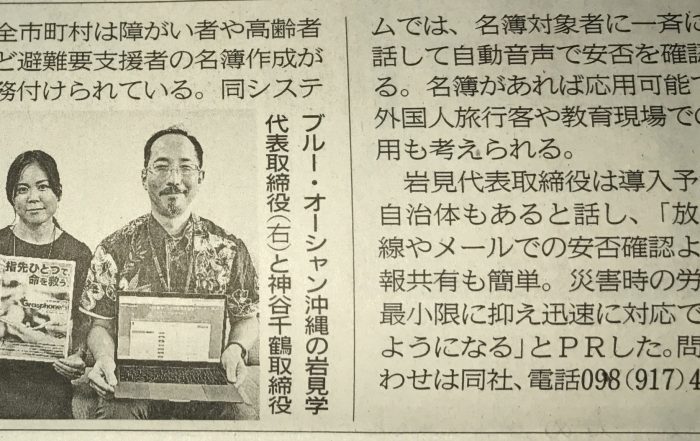 全市町村は障がい者や高齢者
ど避難要支援者の名簿作成が
務付けられている。同システ
ブルー・オーシャン沖縄の岩見学
代表取締役(右)と神谷千鶴取締役
指先ひとつで
命を救う
Grasphone
ムでは、名簿対象者に一斉に
話して自動音声で安否を確認
る。名簿があれば応用可能で
外国人旅行客や教育現場での
用も考えられる。
岩見代表取締役は導入予
自治体もあると話し、「放
線やメールでの安否確認よ
報共有も簡単。災害時の労
最小限に抑え迅速に対応で
ようになる」とPRした。問
わせは同社、電話098(917)4